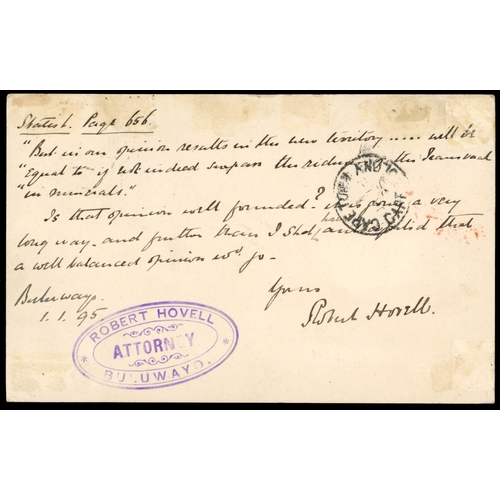 Statist. Page 656.
"But in our opinion results in the new territory will be
"Equal to if not indeed surpass the riches of the Transvaal
"in minerals."
Is that opinion well founded? it is going a very
long way - and further than I shd that
a well balanced opinion wd go -
Buluwayo Yours
1.1.95 Robert Hovell.
CAPE TOWN CAPE COLONY
ROBERT HOVELL
ATTORNEY
* BULUWAYO. *